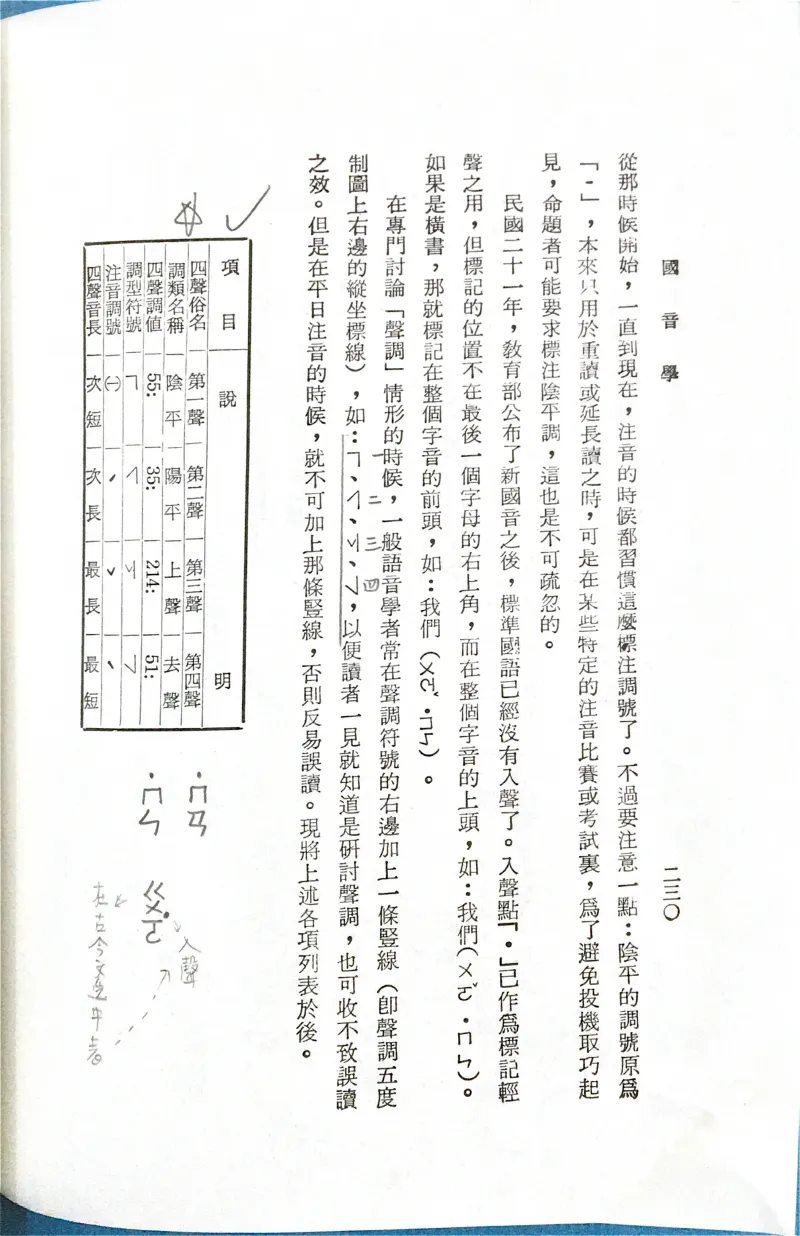 國音學
二三〇
從那時候開始，一直到現在，注音的時候都習慣這麼標注調號了。不過要注意一點：陰平的調號原爲
「-」，本來只用於重讀或延長讀之時，可是在某些特定的注音比賽或考試裏，爲了避免投機取巧起
見，命題者可能要求標注陰平調，這也是不可疏忽的。
民國二十一年，教育部公布了新國音之後，標準國語已經沒有入聲了。入聲點「・」已作爲標記輕
聲之用，但標記的位置不在最後一個字母的右上角，而在整個字音的上頭，如：我們（ㄨㄛˇ・ㄇㄣ）。
如果是橫書，那就標記在整個字音的前頭，如：我們（ㄨㄛˇ・ㄇㄣ）。
在專門討論「聲調」情形的時候，一般語音學者常在聲調符號的右邊加上一條豎線（卽聲調五度
制圖上右邊的縱坐標線），如：˥、˧˥、˨˩˦、˥˩，以便讀者一見就知道是硏討聲調，也可收不致誤讀
一 二 三 四
之效。但是在平日注音的時候，就不可加上那條豎線，否則反易誤讀。現將上述各項列表於後。
項目 說明
四聲俗名 第一聲 第二聲 第三聲 第四聲
調類名稱 陰平 陽平 上聲 去聲
四聲調值 55: 35: 214: 51:
調型符號 ˥ ˧˥ ˨˩˦ ˥˩
注音調號 ㊀ ˊ ˇ ˋ
四聲音長 次短 次長 最長 最短
・ㄇㄢ
・ㄇㄣ
ㄍㄨㄛ・
入聲